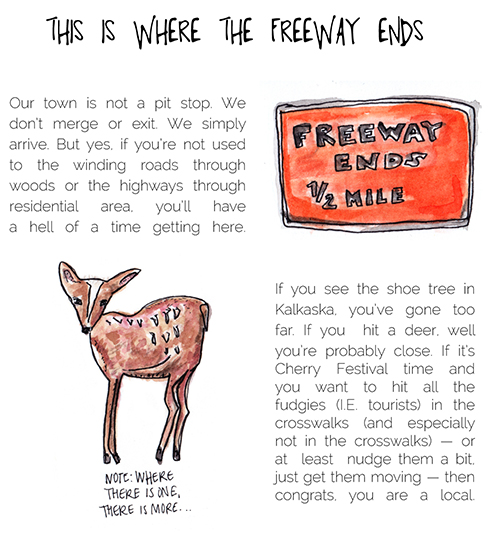 THIS IS WHERE THE FREEWAY ENDS
Our town is not a pit stop. We
don't merge or exit. We simply
arrive. But yes, if you're not used
to the winding roads through
woods or the highways through
residential area, you'll have
a hell of a time getting here.
FREEWAY
ENDS
1/2 MILE
NOTE: WHERE
THERE IS ONE,
THERE IS MORE...
If you see the shoe tree in
Kalkaska, you've gone too
far. If you hit a deer, well
you're probably close. If it's
Cherry Festival time and
you want to hit all the
fudgies (I.E. tourists) in the
crosswalks (and especially
not in the crosswalks) — or
at least nudge them a bit,
just get them moving — then
congrats, you are a local.